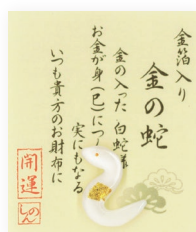 金箔入り
金の蛇
金の入った 白蛇様
お金が身(巳)につ
実にもなる
いつも貴方のお財布に
開運